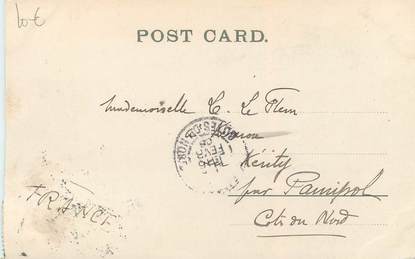 lot
POST CARD.
Mademoiselle C. Le Flem
Kérity
par Paimpol
Cotes du Nord
FRANCE